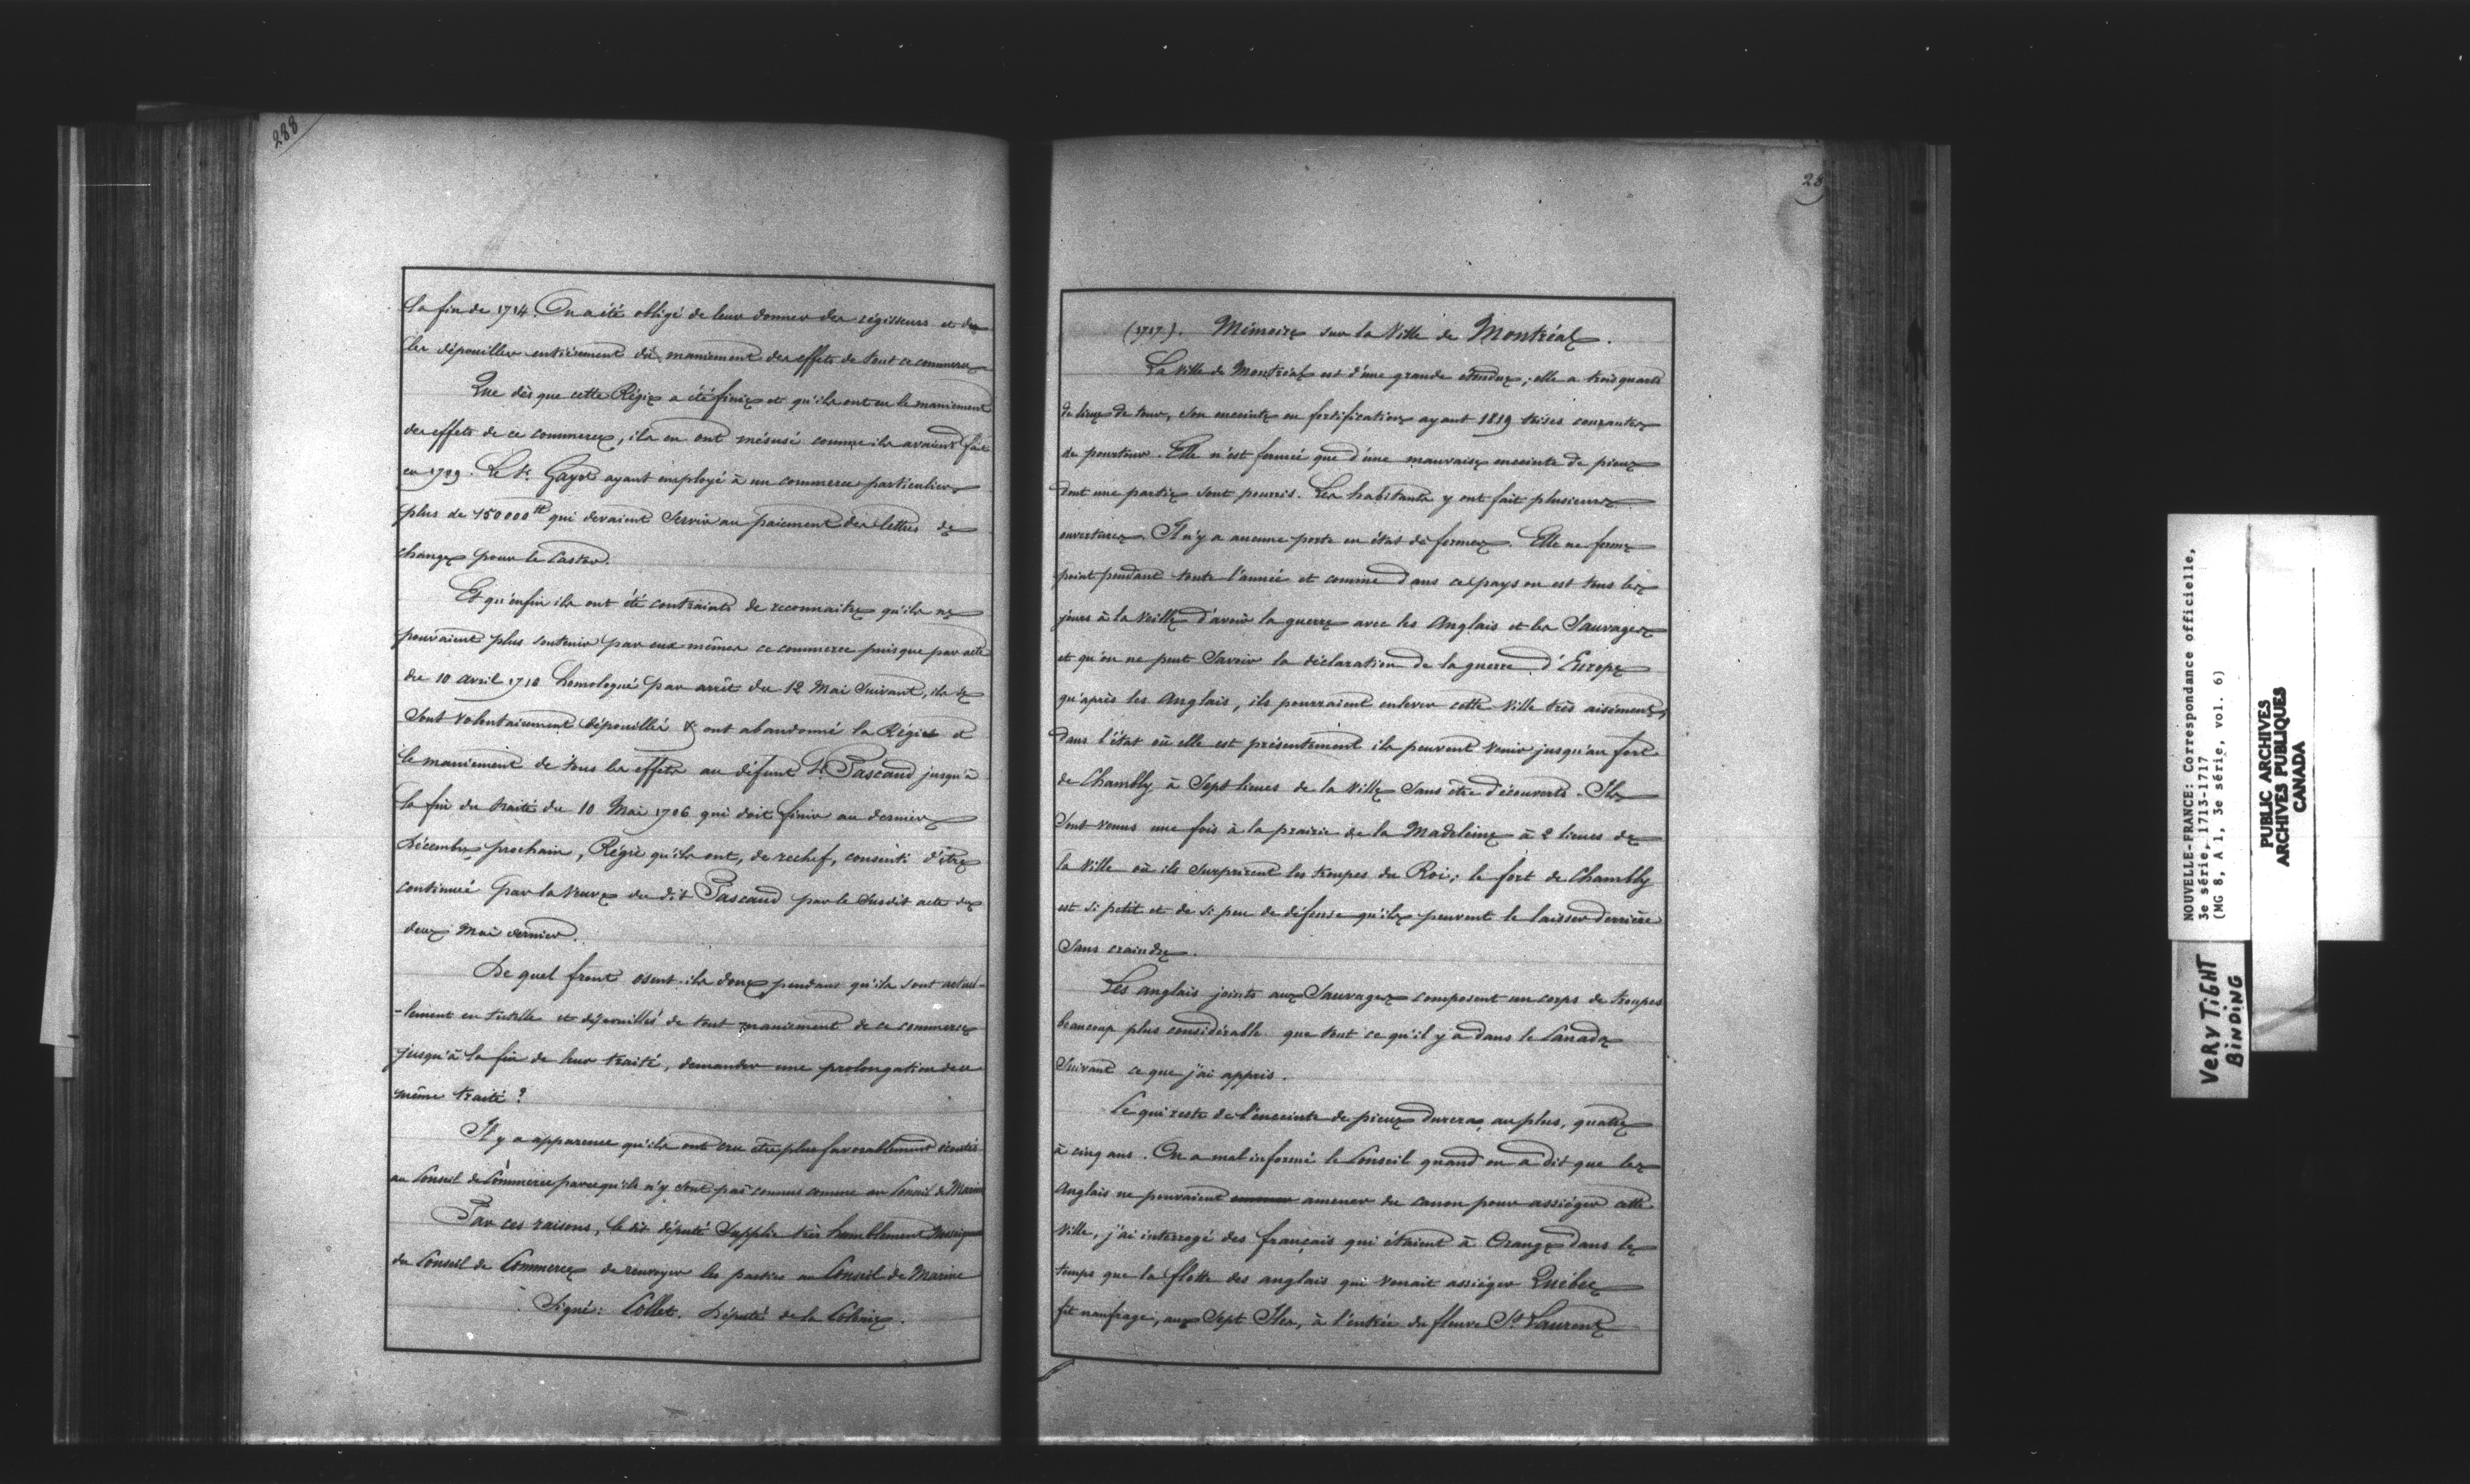 288
la fin de 1714. On a été obligé de leur donner des régisseurs et de
les dépouiller entièrement du maniement des effets de tout ce commerce
Que dès que cette Régie a été finie et qu'ils ont eu le maniement
des effets de ce commerce, ils en ont mésusé comme ils avaient fait
en 1709. Le Sr. Gayot ayant employé à un commerce particulier
plus de 150000tt qui devaient servir au paiement des lettres de
change pour le Castor.
Et qu'enfin ils ont été contraints de reconnaitre qu'ils ne
pouvaient plus soutenir par eux mêmes ce commerce puisque par acte
du 10 avril 1710 homologué par arrêt du 12 Mai Suivant, ils se
sont volontairement dépouillé & ont abandonné la Régie et
le maniement de tous les effets au défunt Sr. Pascaud jusqu'à
la fin du traité du 10 Mai 1706 qui doit finir au dernier
Décembre prochain, Régie qu'ils ont, de rechef, consenti d'être
continuée par la Veuve du dit Pascaud par le susdit acte du
deux Mai dernier.
De quel front osent-ils donc pendant qu'ils sont actuel-
-lement en tutelle et dépouillés de tout maniement de ce commerce
jusqu'à la fin de leur traité, demander une prolongation de ce
même traité ?
Il y a apparence qu'ils ont cru être plus favorablement écoutés
au Conseil de Commerce parcequ'ils n'y sont pas connus comme au Conseil de Marine
Par ces raisons, le dit député Supplie très humblement Messieurs
du Conseil de Commerce de renvoyer les parties au Conseil de Marine
Signé : Collet. Député de la Colonie.
28
(1717). Mémoire sur la Ville de Montréal.
La Ville de Montréal est d'une grande étendue ; elle a trois quarts
de lieue de tour, son enceinte en fortification ayant 1819 toises courantes
de pourtour. Elle n'est fermée que d'une mauvaise enceinte de pieux
dont une partie sont pourris. Les habitants y ont fait plusieurs
ouvertures. Il n'y a aucune porte en état de fermer. Elle ne ferme
point pendant toute l'année et comme dans ce pays on est tous les
jours à la Veille d'avoir la guerre avec les Anglais et les Sauvages
et qu'on ne peut Savoir la déclaration de la guerre d'Europe
qu'après les Anglais, ils pourraient enlever cette Ville très aisément,
dans l'état où elle est présentement ils peuvent venir jusqu'au fort
de Chambly à Sept lieues de la Ville Sans être découverts. Ils
Sont venus une fois à la prairie de la Madeleine à 2 lieues de
la Ville où ils Surprirent les troupes du Roi ; le fort de Chambly
est si petit et de si peu de défense qu'ils peuvent le laisser derrière
Sans craindre.
Les anglais joints aux Sauvages composent un corps de troupes
beaucoup plus considérable que tout ce qu'il y a dans le Canada
Suivant ce que j'ai appris.
Ce qui reste de l'enceinte de pieux durera, au plus, quatre
à cinq ans. On a mal informé le Conseil quand on a dit que les
Anglais ne pouvaient amener du canon pour assiéger cette
Ville, j'ai interrogé des français qui étaient à Orange dans le
temps que la flotte des anglais qui venait assiéger Québec
fit naufrage, aux Sept Iles, à l'entrée du fleuve St Laurent
NOUVELLE-FRANCE: Correspondance officielle,
3e série, 1713-1717
(MG 8, A 1, 3e série, vol. 6)
PUBLIC ARCHIVES
ARCHIVES PUBLIQUES
CANADA
VERY TIGHT
BINDING